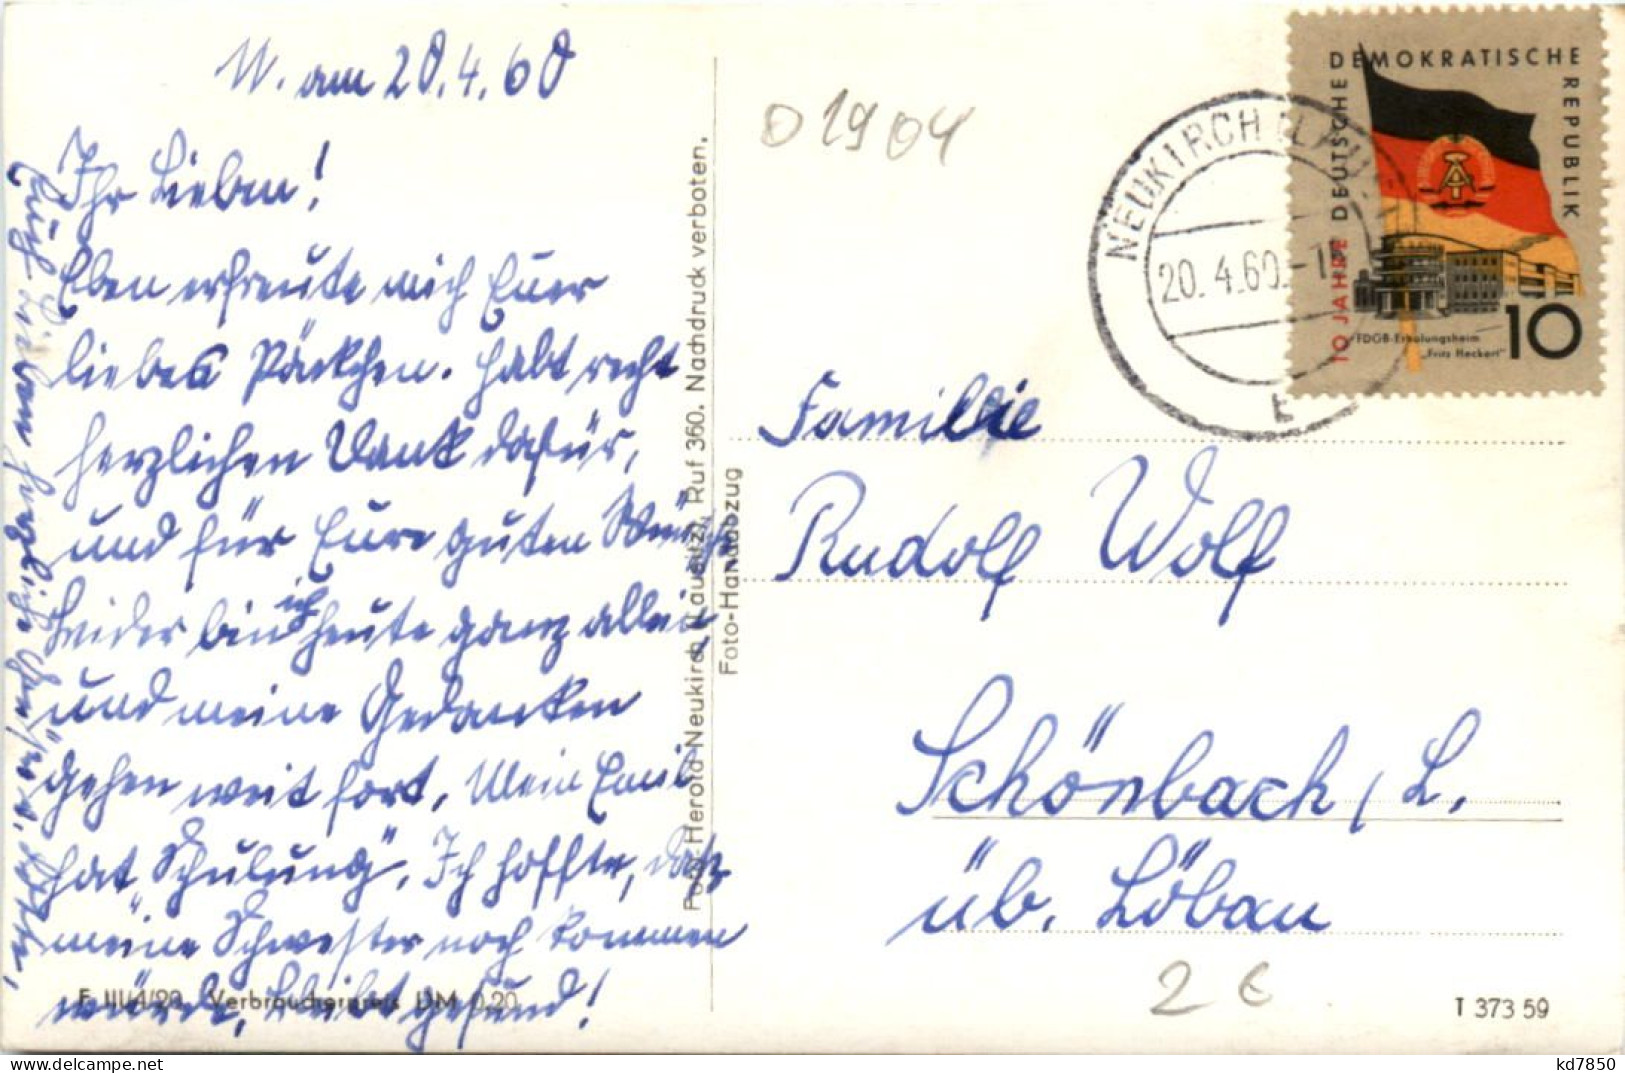 W. am 20.4.60
Ihr Lieben!
Eben erfreute mich Euer
liebes Päckchen. Habt recht
herzlichen Dank dafür,
und für Eure guten Wünsche
Leider bin ich heute ganz allein
und meine Gedanken
gehen weit fort. Mein Emil
hat „Schulung“. Ich hoffte, daß
meine Schwester noch kommen
würde. Bleibt gesund!
Euch Lieben herzliche
Foto-Herold-Neukirch (Lausitz), Ruf 360. Nachdruck verboten.
Foto-Handabzug
F III/4/20 Verbraucherpreis DM 0,20
01904
NEUKIRCH (LAU
20.4.60.-1
E
10 JAHRE DEUTSCHE DEMOKRATISCHE REPUBLIK
FDGB-Erholungsheim
„Fritz Heckert“
10
Familie
Rudolf Wolf
Schönbach / L.
üb. Löbau
2 €
T 373 59
kd7850